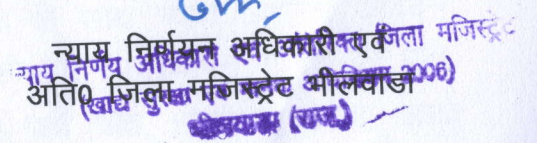 न्याय निर्णयन अधिकारी एवं
अति0 जिला मजिस्ट्रेट भीलवाडा
न्याय निर्णय अधिकारी एवं अतिरिक्त जिला मजिस्ट्रेट
(खाद्य सुरक्षा 2006)
भीलवाड़ा (राज.)